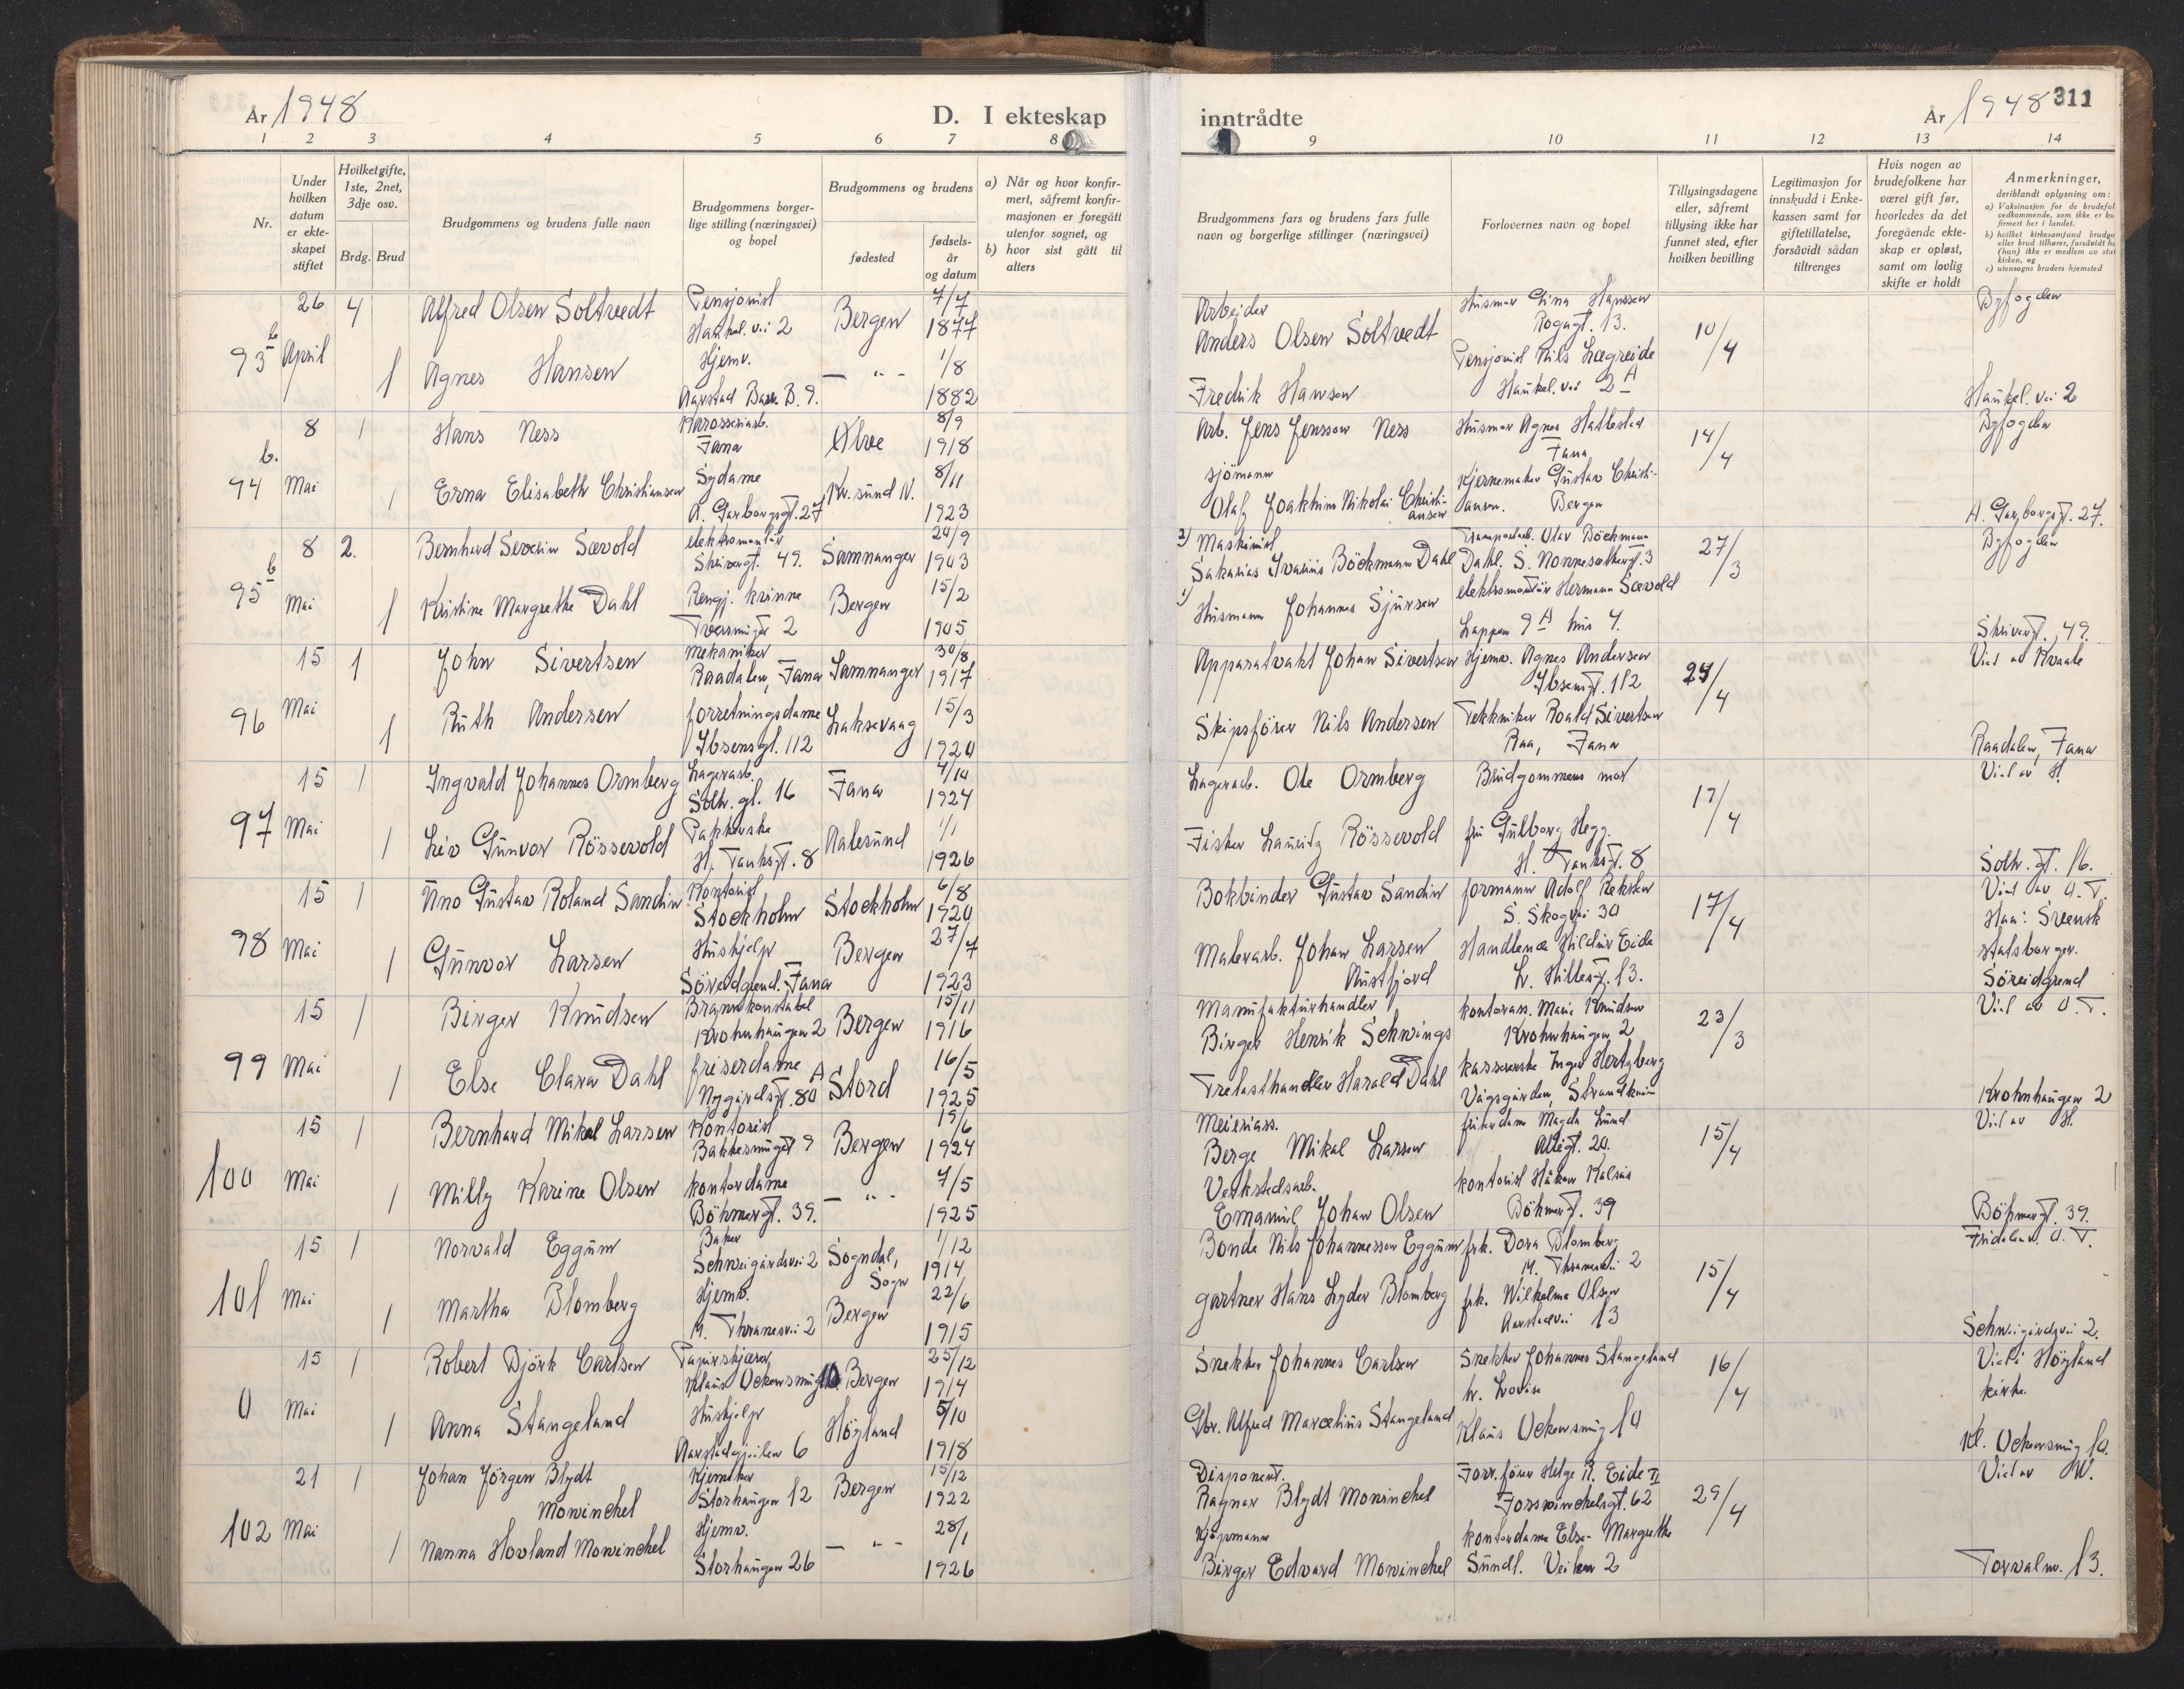 År 1948
D. I ekteskap
inntrådte
År 1948
311
1 2 3 4 5 6 7 8
9 10 11 12 13 14
Nr.
Under hvilken datum er ekteskapet stiftet
Hvilket gifte, 1ste, 2net, 3dje osv.
Brdg. Brud
Brudgommens og brudens fulle navn
Brudgommens borgerlige stilling (næringsvei) og bopel
Brudgommens og brudens
fødested
fødselsår og datum
a) Når og hvor konfirmert, såfremt konfirmasjonen er foregått utenfor sognet, og
b) hvor sist gått til alters
Brudgommens fars og brudens fars fulle navn og borgerlige stillinger (næringsvei)
Forlovernes navn og bopel
Tillysingsdagene eller, såfremt tillysing ikke har funnet sted, efter hvilken bevilling
Legitimasjon for innskudd i Enkekassen samt for giftetillatelse, forsåvidt sådan tiltrenges
Hvis nogen av brudefolkene har været gift før, hvorledes da det foregående ekteskap er opløst, samt om lovlig skifte er holdt
Anmerkninger,
deriblandt oplysning om:
93 b 26 April 4 Alfred Olsen Soltvedt Pensjonist Haukel. vei 2 Bergen 7/7 1877
Arbeider Anders Olsen Soltvedt Husmor Gina Hanssen Rogagt. 13. 10/4 Byfogden
1 Agnes Hansen Hjemv. Aarstad Barr. B. 9. — " - 1/8 1882
Fredrik Hansen Pensjonist Nils Lægreide Haukel. vei 2 A Haukel. vei 2
94 b. 8 Mai 1 Hans Ness Karosseriarb. Fana Ølve 8/9 1918
Arb. Jens Jenssen Ness Husmor Agnes Hatlestad Fana 14/4 Byfogden
1 Erna Elisabeth Christiansen Sydame A. Garborgsgt. 27 Kr.sund N. 8/11 1923
sjömann Olaf Joakhim Nikolai Christiansen Gustav Christiansen. Bergen A. Garborgsgt. 27.
95 b 8 Mai 2. Bernhard Severin Sævold elektromontör Skivergt. 49. Samnanger 24/9 1903
2) Maskinist Sakarias Ivarius Böckmann Dahl Olav Böckmann Dahl. S. Nonnesæthergt. 3 27/3 Byfogden
1 Kristine Margrethe Dahl Rengj. kvinne 2 Bergen 15/2 1905
1) Husmann Johannes Sjursen elektromontör Hermann Sævold Lappen 9 A hus 4. Skivergt. 49.
96 15 Mai 1 John Sivertsen mekaniker Raadalen, Fana Samnanger 30/8 1917
Apparatvakt Johan Sivertsen Hjemv. Agnes Andersen Ibsensgt. 112 24/4 Viet av Kvaale
1 Ruth Andersen forretningsdame Ibsensgt. 112 Laksevaag 15/3 1920
Skipsförer Nils Andersen Tekkniker Roald Sivertsen Raa, Fana Raadalen, Fana
97 15 Mai 1 Ingvald Johannes Ormberg Lagerarb. Solh. gt. 16 Fana 4/10 1924
Lagerarb. Ole Ormberg Brudgommens mor 17/4 Viet av H.
1 Liv Gunvor Rössevold Pakkerske H. Tanksgt. 8 Aalesund 1/1 1926
Fisker Lauritz Rössevold fru Gulborg Hegg. H. Tanksgt. 8 Solh. gt. 16.
98 15 Mai 1 Uno Gustav Roland Sandin Kontorist Stockholm Stockholm 6/8 1920
Bokbinder Gustav Sandin formann Adolf Reksten S. Skogvei 30 17/4 Viet av O.T. Han: Svensk statsborger.
1 Gunvor Larsen Hushjelp Söreidgrend. Fana Bergen 27/7 1923
Malerarb. Johan Larsen Austfjord Handlende Hildur Eide L. Hillesgt. 13. Söreidgrend
99 15 Mai 1 Birger Knudsen Brannkonstabel Krohnhaugen 2 Bergen 15/11 1916
Manufakturhandler Birger Henrik Schwings kontorass. Marie Knudsen Krohnhaugen 2 23/3 Viet av O.T.
1 Else Clara Dahl friserdame Nygårdsgt. 80 A Stord 16/5 1925
Trelasthandler Harald Dahl kassererske Inger Hertzberg Vågsgården, Strandkaien Krohnhaugen 2
100 15 Mai 1 Bernhard Mikal Larsen Kontorist Bakkesmuget 9 Bergen 19/6 1924
Meieriass. Berge Mikal Larsen friserdame Magda Lund Allégt. 20. 15/4 Viet av H.
1 Milly Karine Olsen kontordame Böhmergt. 39. — " - 7/5 1925
Verkstedsarb. Emanuel Johan Olsen kontorist Håkon Kalsås Böhmergt. 39 Böhmergt. 39.
101 15 Mai 1 Norvald Eggum Baker Schweigårdsvei 2 Sogndal, Sogn 1/12 1914
Bonde Nils Johannessen Eggum frk. Dora Blomberg M. Thranesvei 2 15/4 Fridalen. O.T.
1 Martha Blomberg Hjemv. M. Thranesvei 2 Bergen 22/6 1915
gartner Hans Lyder Blomberg frk. Wilhelma Olsen Aarstadvei 13 Schweigårdsvei 2.
0 15 Mai 1 Robert Björk Carlsen Papirskjærer Klaus Ockensmug 10. Bergen 25/12 1914
Snekker Johannes Carlsen Snekker Johannes Stangeland 16/4 Viet i Höyland kirke.
1 Anna Stangeland Hushjelp Aarstadgjeilen 6 Höyland 5/10 1918
Gbr. Alfred Marcelius Stangeland Klaus Ockensmug 10 Kl. Ockensmug 10.
102 21 Mai 1 Johan Jörgen Blydt Mowinckel Kjemiker Storhaugen 12 Bergen 15/12 1922
Disponent. Ragnar Blydt Mowinckel Forr.förer Helge R. Eide Fosswinckelsgt. 62 29/4 Viet av W.
1 Nanna Hovland Mowinckel Hjemv. Storhaugen 26 — " - 28/1 1926
Kjøpmann Birger Edvard Mowinckel kontordame Else-Margrethe Sundt. Veiten 2 Torvalm. 13.